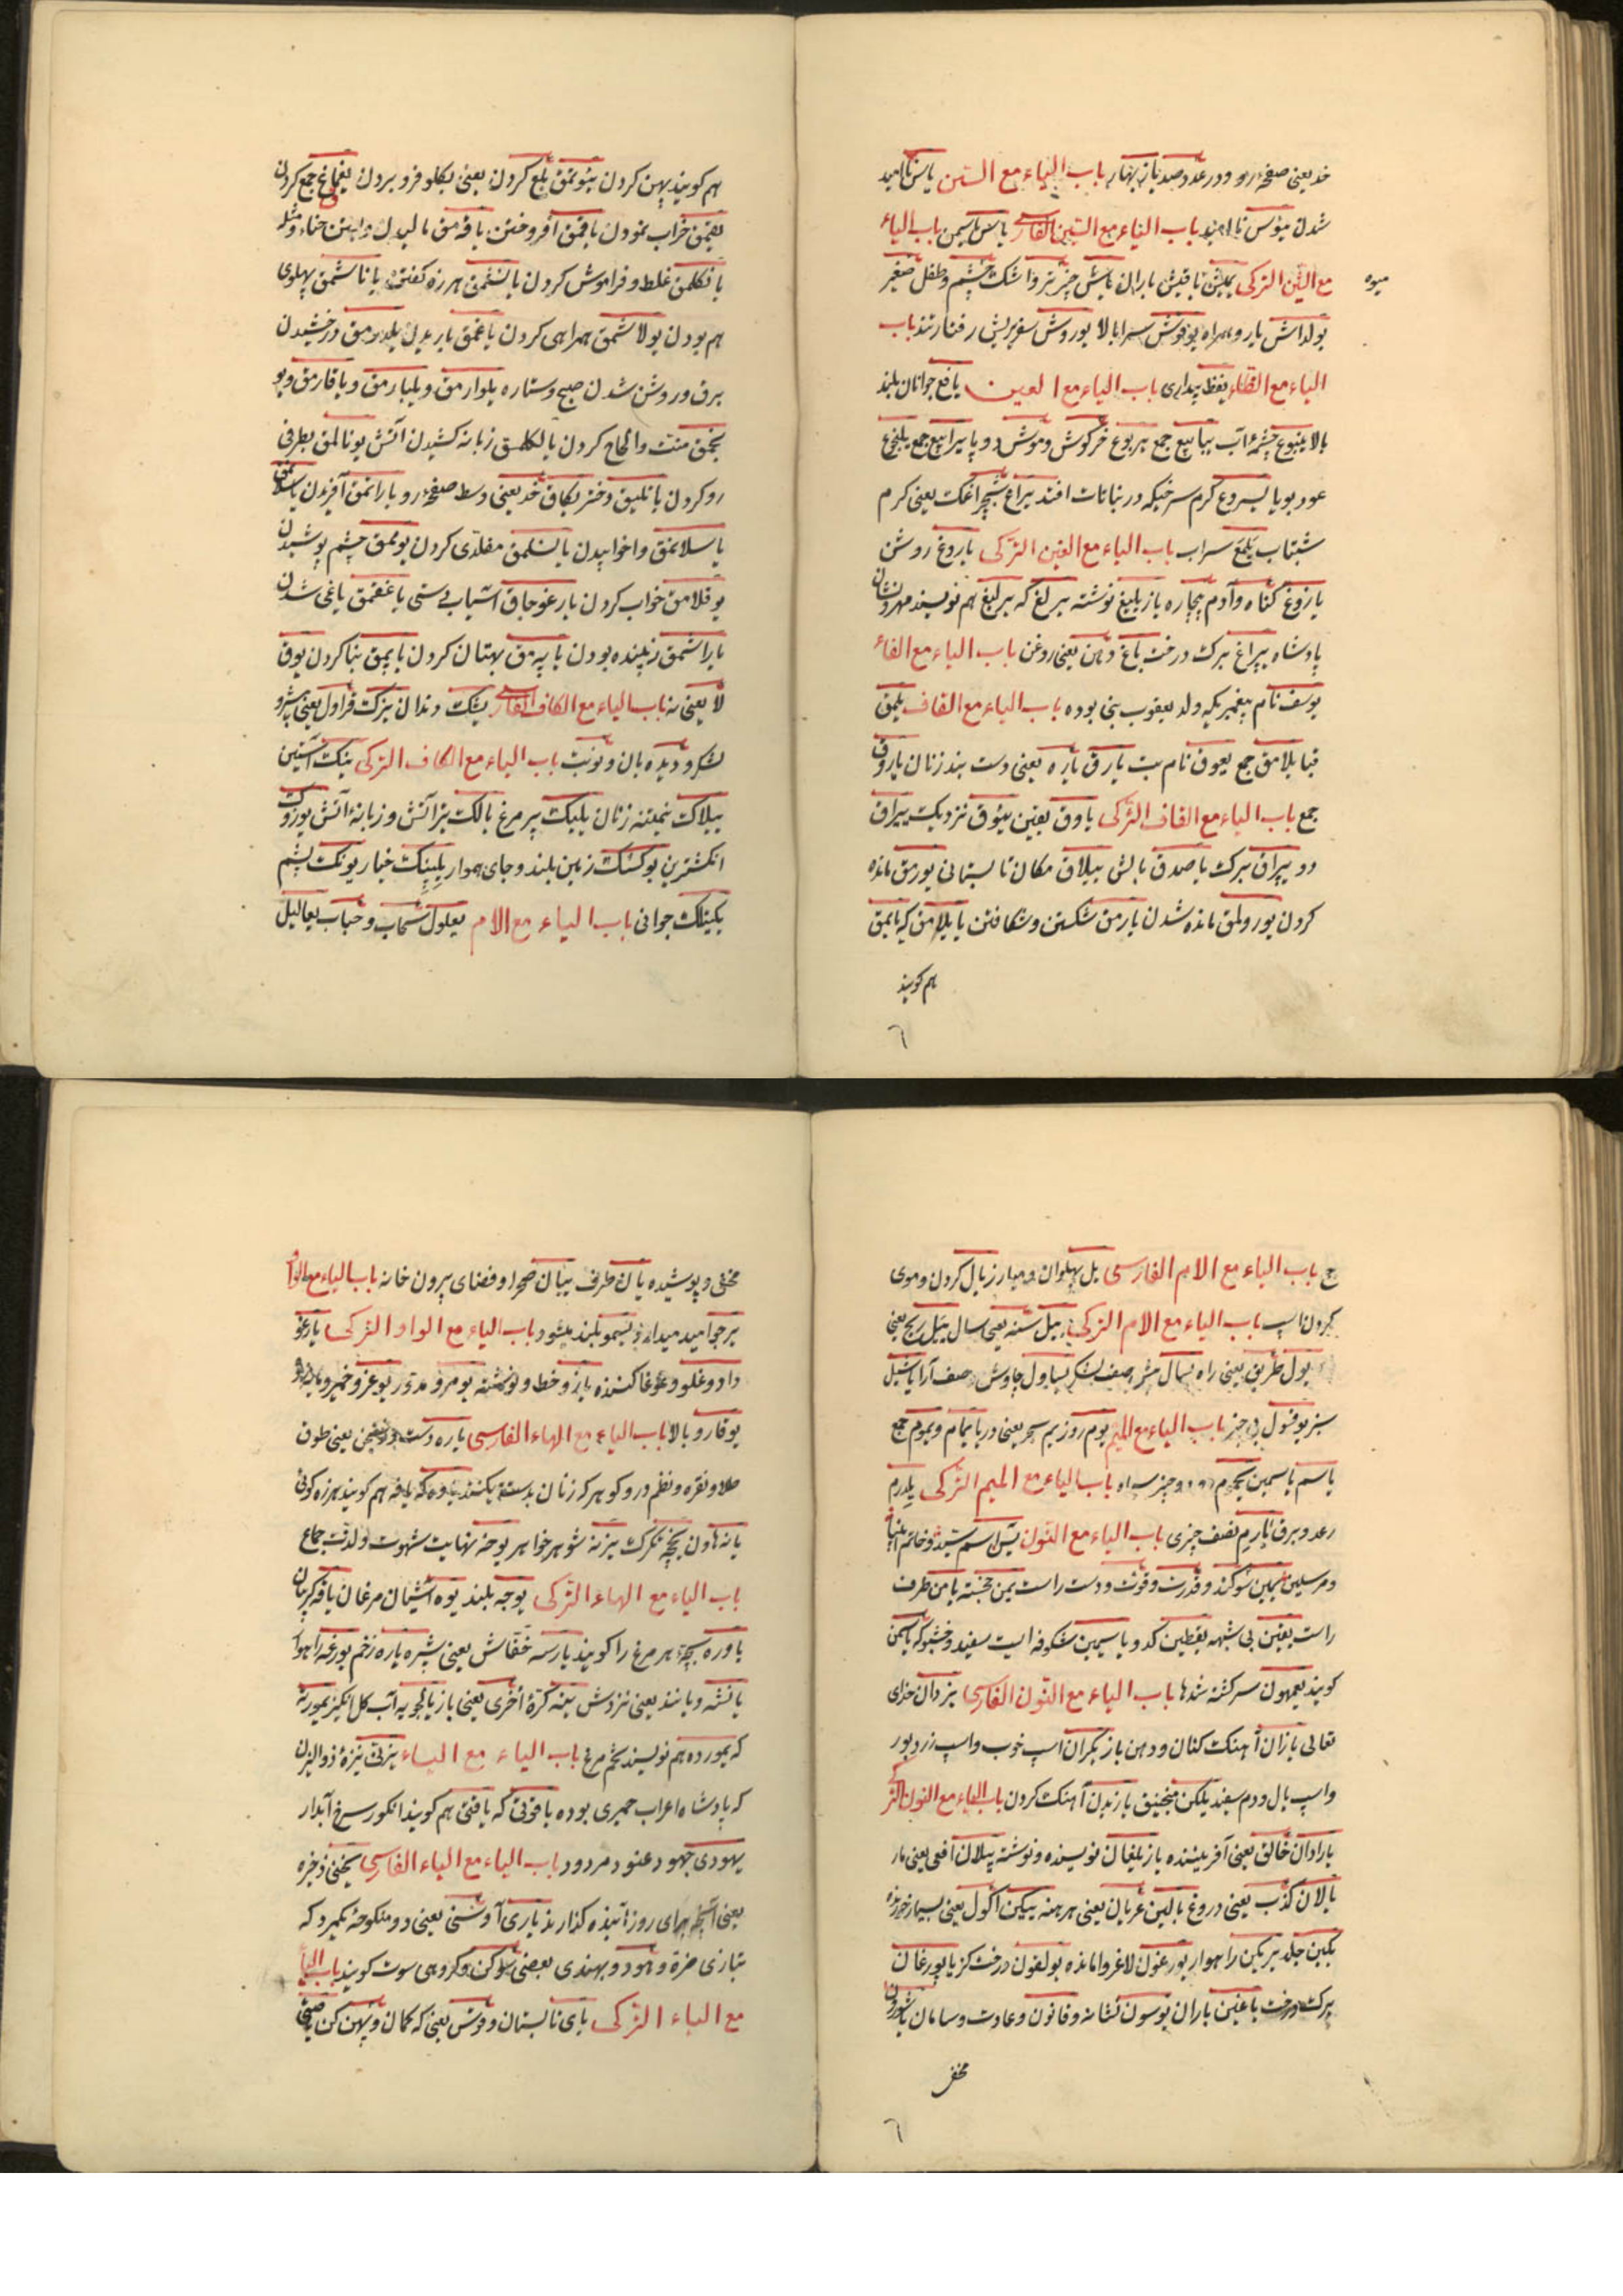 خد یعنی صفحهٔ رو و در عدد صد یاز بهار باب الیاء مع السین یاس ناامید
شدن میؤس ناامید باب الیاء مع السین الفارسی یاس یاسمن باب الیاء
مع الشین الترکی یمیش یاقیش باران یاش چیز تر و اشک چشم و طفل صغیر
میوه
یولداش یار و همراه یوقوش سرابالا یوروش سفر یریش رفتار تند باب
الیاء مع الظاء یقظ بیداری باب الیاء مع العین یافع جوانان بلند
بالا ینبوع چشمهٔ آب ینابیع جمع یربوع خرگوش و موش دو پا یرابیع جمع یلنجوع
عود بویا یسروع کرم سرخیکه در نباتات افتد یراع شبچراغک یعنی کرم
شبتاب یلمع سراب باب الیاء مع الغین الترکی یاروغ روشن
یازوغ گناه و آدم بیچاره یازیلیغ نوشته یرلغ که یرلیغ هم نویسند مهر و نشان
پادشاه یپراغ برک درخت یاغ دهن یعنی روغن باب الیاء مع الفاء
یوسف نام پیغمبریکه ولد یعقوب نبی بوده باب الیاء مع القاف یلمق
قبا یلامق جمع یعوق نام بت یارق یاره یعنی دست بند زنان یاروق
جمع باب الیاء مع القاف الترکی یاوق یقین ییوق نزدیک ییراق
دور یپراق برک یاصدق بالش ییلاق مکان تابستانی یورمق مانده
کردن یورولمق مانده شدن یارمق شکستن و شکافتن یایلامق که یایمق
هم کویند
٦
هم کویند پهن کردن ینوتمق بلع کردن یعنی بکلو فرو بردن یغماغ جمع کردن
یقمق خراب نمودن یاقمق افروختن یاقه مق مالیدن و بستن حناء و مثله
یانکلمق غلط و فراموش کردن یانشمق هرزه کفتن یاناشمق پهلوی
هم بودن یولاشمق همراهی کردن یاغمق باریدن یلدرمق درخشیدن
برق و روشن شدن صبح و ستاره یلوارمق و یلبارمق و یاقارمق و یو
نجمق منت و الحاح کردن یالکلمق زبانه کشیدن آتش یونالمق بطرفی
رو کردن یانلیق دختر یکاق خد یعنی وسط صفحهٔ رو یاراتمق آفریدن
یاسلانمق واخوابیدن یانسلمق مقلدی کردن یوممق چشم پوشیدن
یوقلامق خواب کردن یارغوجاق آسیاب دستی یاغقمق یاغی شدن
یاراشمق زیبنده بودن یاپه مق بهتان کردن یاپمق بنا کردن یوق
لا یعنی نه باب الیاء مع الکاف الفارسی یشک دندان یزک قراول یعنی پیشرو
لشکر و دیده بان و نوبت باب الیاء مع الکاف الترکی ینک آستین
ییلاک نیمتنه زنان یلیک پر مرغ یالک تیز آتش و زبانهٔ آتش یوزوک
انکشترین یوکسک زمین بلند و جای هموار یلپنک خیار یونک پشم
یکیتلک جوانی باب الیاء مع اللام یعلول سحاب و حباب یعالیل
ج باب الیاء مع اللام الفارسی یل پهلوان و مبارز یال کردن و موی
کردن اسپ باب الیاء مع اللام الترکی ییل سنه یعنی سال ییل ریح یعنی
یول طریق یعنی راه یسال صف لشکر یساول چاوش و صف آرا یاشیل
سبز یوقسول بی چیز باب الیاء مع المیم یوم روز یم بحر یعنی دریا یمام و یموم جمع
یاسم یاسمین یحموم دود و چیز سیاه باب الیاء مع المیم الترکی یلدرم
رعد و برق یارم نصف چیزی باب الیاء مع النون یس اسم سید و خاتم انبیا
و مرسلین یمین سوکند و قدرت و قوت و دست راست یمن خجسته یامن طرف
راست یقین بی شبهه یقطین کدو یاسمین شکوفه ایست سفید و خشبو که یاسمن
کویند یعمهون سرکشته شدها باب الیاء مع النون الفارسی یزدان خدای
تعالی یازان آهنک کنان و دهن باز یکران اسپ خوب و اسپ زرد بور
و اسپ یال و دم سفید یلکن منجنیق یازیدن آهنک کردن باب الیاء مع النون الترکی
یارادان خالق یعنی آفریننده یازیلیغان نویسنده و نوشته ییلان افعی یعنی مار
یالان کذب یعنی دروغ یالین عریان یعنی برهنه ییکین اکول یعنی بسیار خورنده
یکین جلد یریکن راهوار یورغون لاغر وامانده یولغون درخت کز یاپورغان
برک درخت یاغین باران یوسون نشانه و قانون و عادت و سامان یاشورون
مخفی
٦
مخفی و پوشیده یان طرف یبان صحرا و فضای بیرون خانه باب الیاء مع الواو
یرجوا میدارند یسمو بلند میشود باب الیاء مع الواو الترکی یارغو
داد و غلو و غوغا کننده یازو خط و نوشته یومرو مدور یوغرو خمیر
یوقارو بالا باب الیاء مع الهاء الفارسی یاره دست ورنجن یعنی طوق
طلا و نقره و نظم در و کوهر که زنان بدست کنند یاوه که یافه هم کویند هرزه کوئی
یانه هاون یخچه تکرک یزنه شوهر خواهر یوحه نهایت شهوت و لذت جماع
باب الیاء مع الهاء الترکی یوجه بلند یوه آشیان مرغان یاقه کریبان
یاوره بچهٔ هر مرغ را کویند یارسه خفاش یعنی شپره یاره زخم یورغه راهوار
یانشه و یانند یعنی نزدش ینه کرة أخری یعنی باز یالجویه آب کل انکیز یمورته
که یمورده هم نویسند تخم مرغ باب الیاء مع الیاء یزنی نیزهٔ ذوالیزن
که پادشاه اعراب حمیری بوده یاقوتی که یاقتی هم کویند انکور سرخ آبدار
یهودی جهود عنود مردود باب الیاء مع الیاء الفارسی یخنی ذخیره
یعنی آنچه برای روز آینده کذارند یاری آوسنی یعنی دو منکوحهٔ یکمرد که
بتازی ضرة و هوو و بهندی بعضی سوکن و کروهی سوت کویند باب الیاء
مع الیاء الترکی یای تابستان و قوس یعنی که کمان و پهن کن